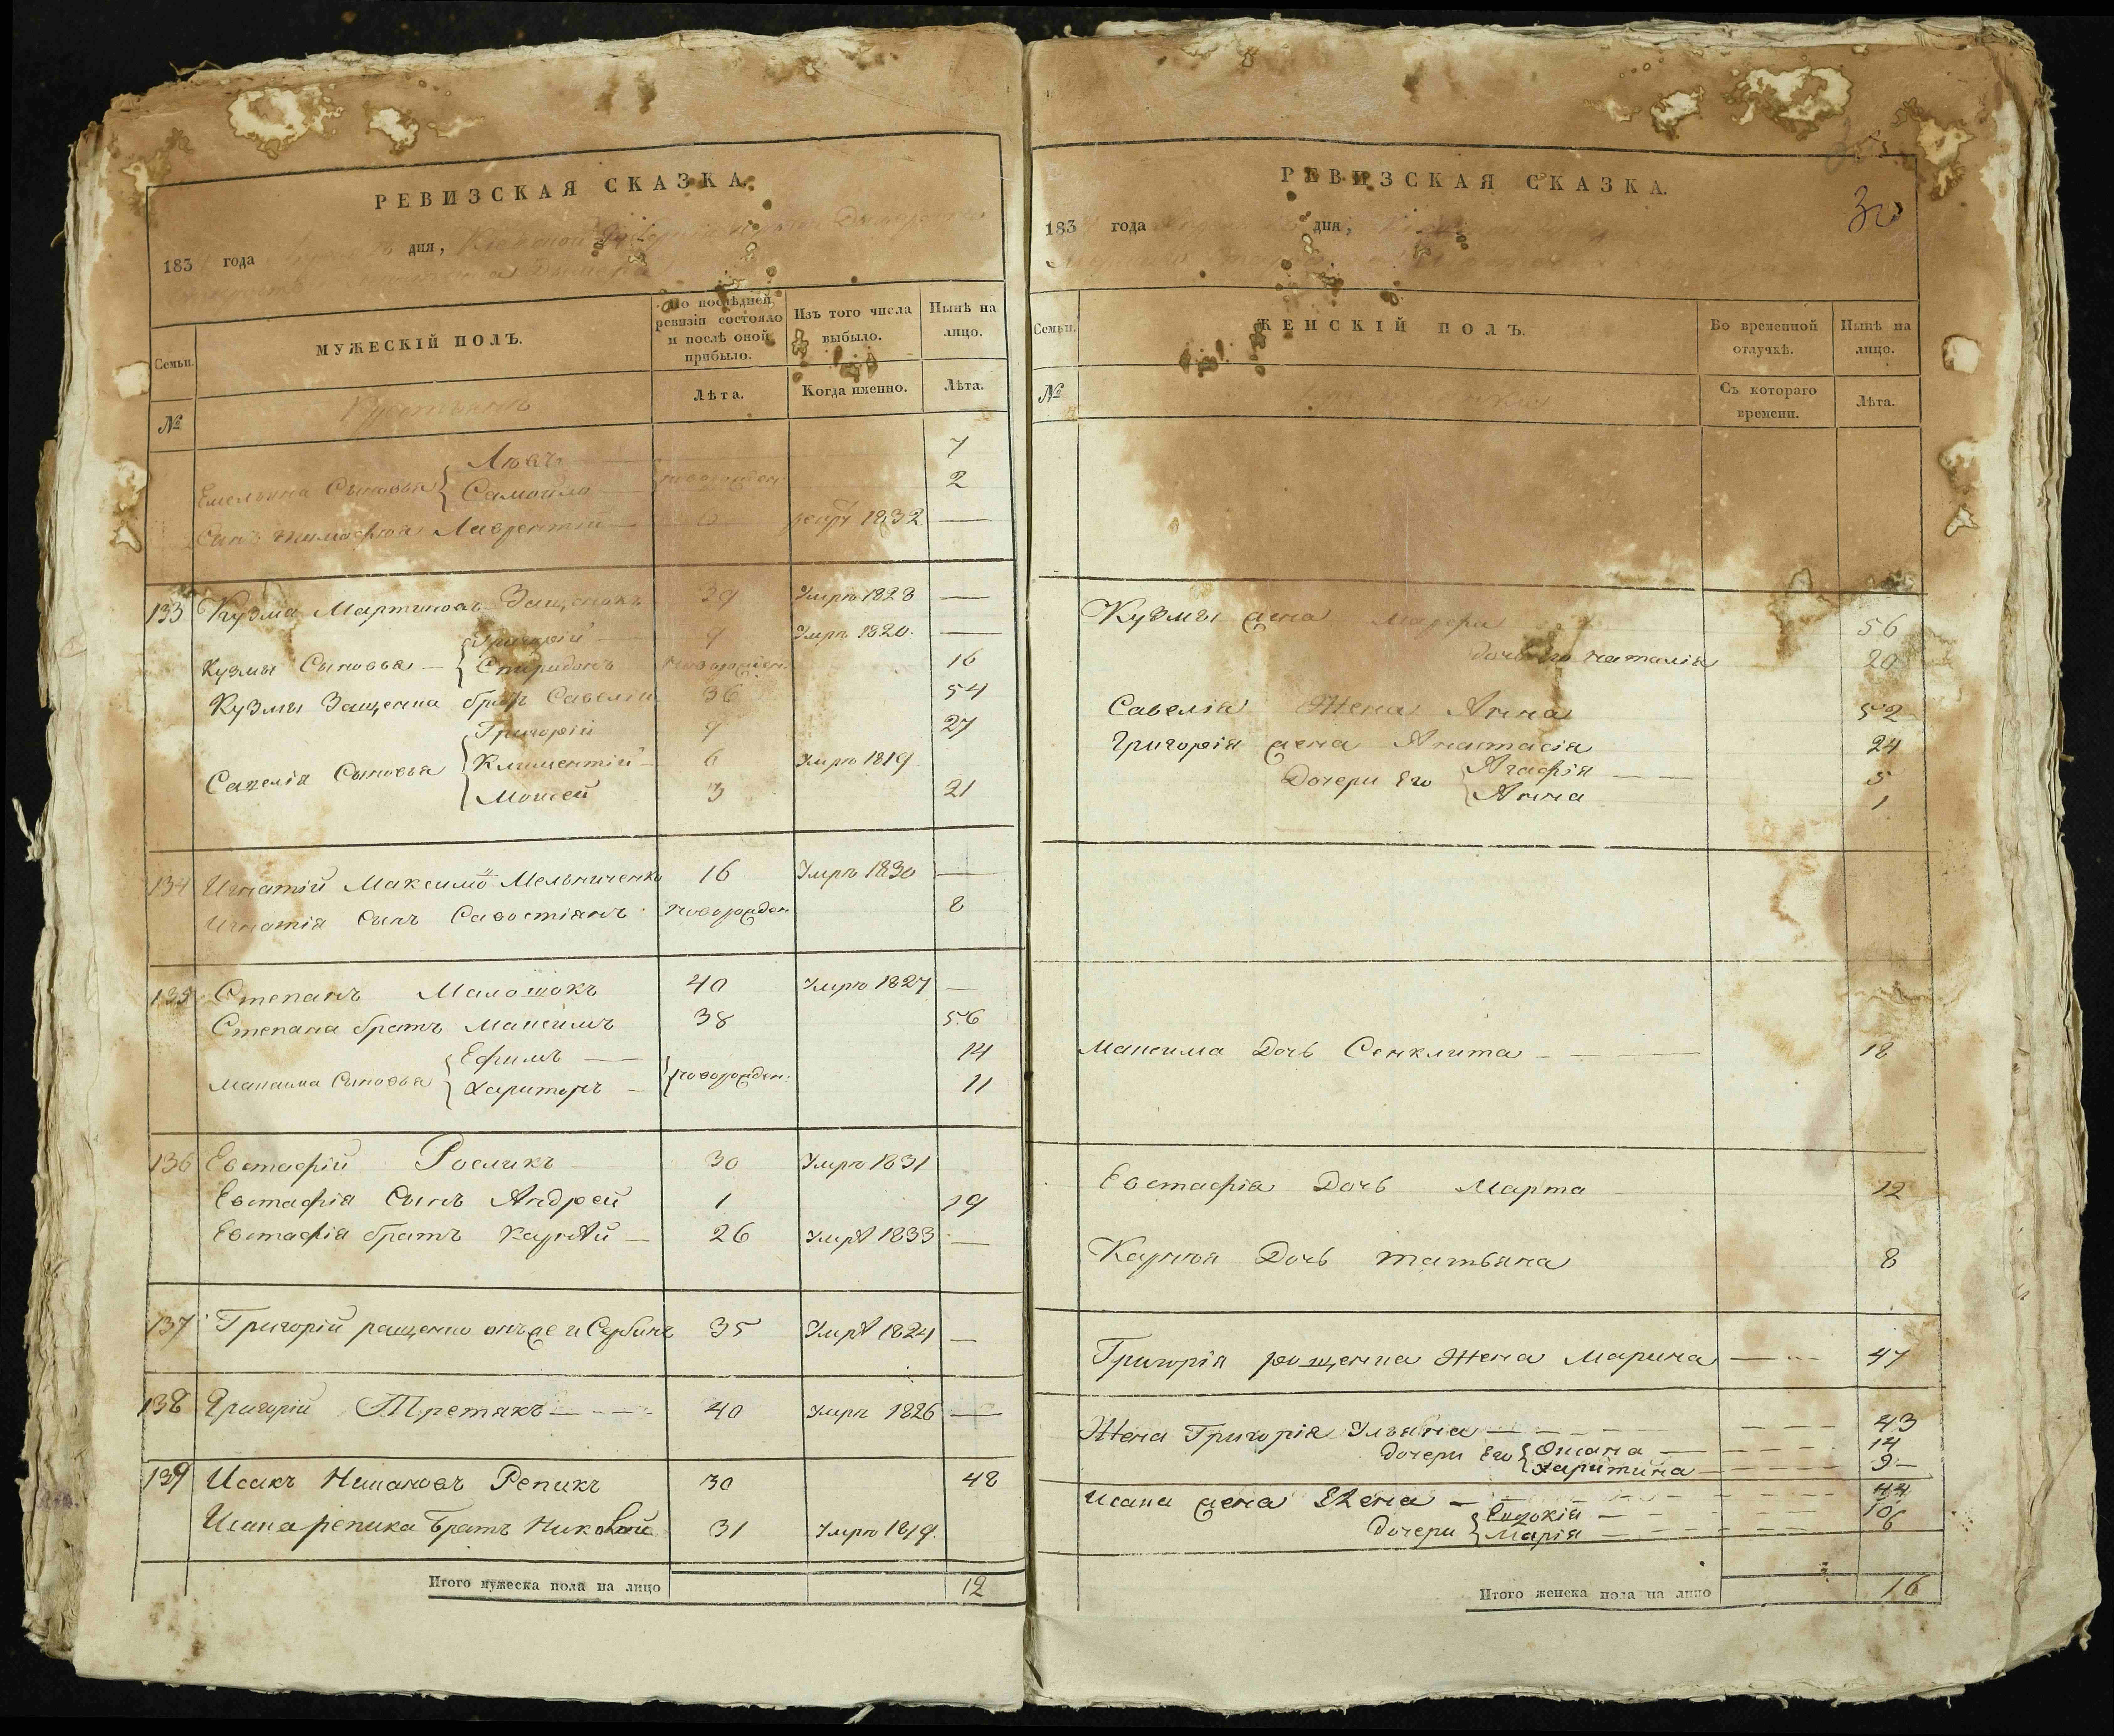 РЕВИЗСКАЯ СКАЗКА.
183 года дня, Кіевской Губерніи
МУЖЕСКІЙ ПОЛЪ.
По послѣдней ревизіи состояло и послѣ оной прибыло.
Изъ того числа выбыло.
Нынѣ на лицо.
Семьи.
№
Лѣта.
Когда именно.
Лѣта.
7
Емельяна Сыновья Самойло новорожден. 2
Сынъ Тимофѣя Лаврентій рекру 1832 —
133 Кузма Мартиновъ Защенокъ 39 Умре 1828 —
Григорій 9 Умре 1820. —
Кузмы Сыновья — Спиридонъ новорожден. 16
Кузмы Защенка братъ Савелій 36 54
Григорій 9 27
Савелія Сыновья Климентій — 6 Умре 1819
Моисей 3 21
134 Игнатій Максимо Мельниченко 16 Умре 1830 —
Игнатія Сынъ Савостіянъ новорожден 8
135 Степанъ Малошокъ 40 Умре 1827 —
Степана братъ Максимъ 38 56
Ефимъ — 14
Максима Сыновья Харитонъ — новорожден. 11
136 Евстафій Росликъ 30 Умре 1831
Евстафія Сынъ Андрей 1 19
Евстафія братъ Карпѣй — 26 Умрѣ 1833 —
137 Григорій ращенко онъ же и Сербинъ 35 Умрѣ 1824 —
138 Григорій Третякъ — 40 Умре 1826 —
139 Исакъ Репикъ 30 48
Исака репика Братъ Николай 31 Умре 1819.
Итого мужеска пола на лицо 12
РЕВИЗСКАЯ СКАЗКА.
30
183 года дня,
Семьи.
ЖЕНСКІЙ ПОЛЪ.
Во временной отлучкѣ.
Нынѣ на лицо.
№
Съ котораго времени.
Лѣта.
Кузмы жена 56
дочь его наталія 20
Савелія Жена Анна 52
Григорія жена Анастасія 24
Дочери Его Агафія — 5
Анна 1
Максима Дочь Сенклита — 18
Евстафія Дочь Марта 12
Карпѣя Дочь татьяна 8
Григорія рощенка Жена Марина — 47
Жена Григорія Ульяна — 43
Дочери Его Оксана — 14
Харитина — 9
Исака жена Елена — 44
Дочери Евдокія — 10
Марія — 6
Итого женска пола на лицо 16